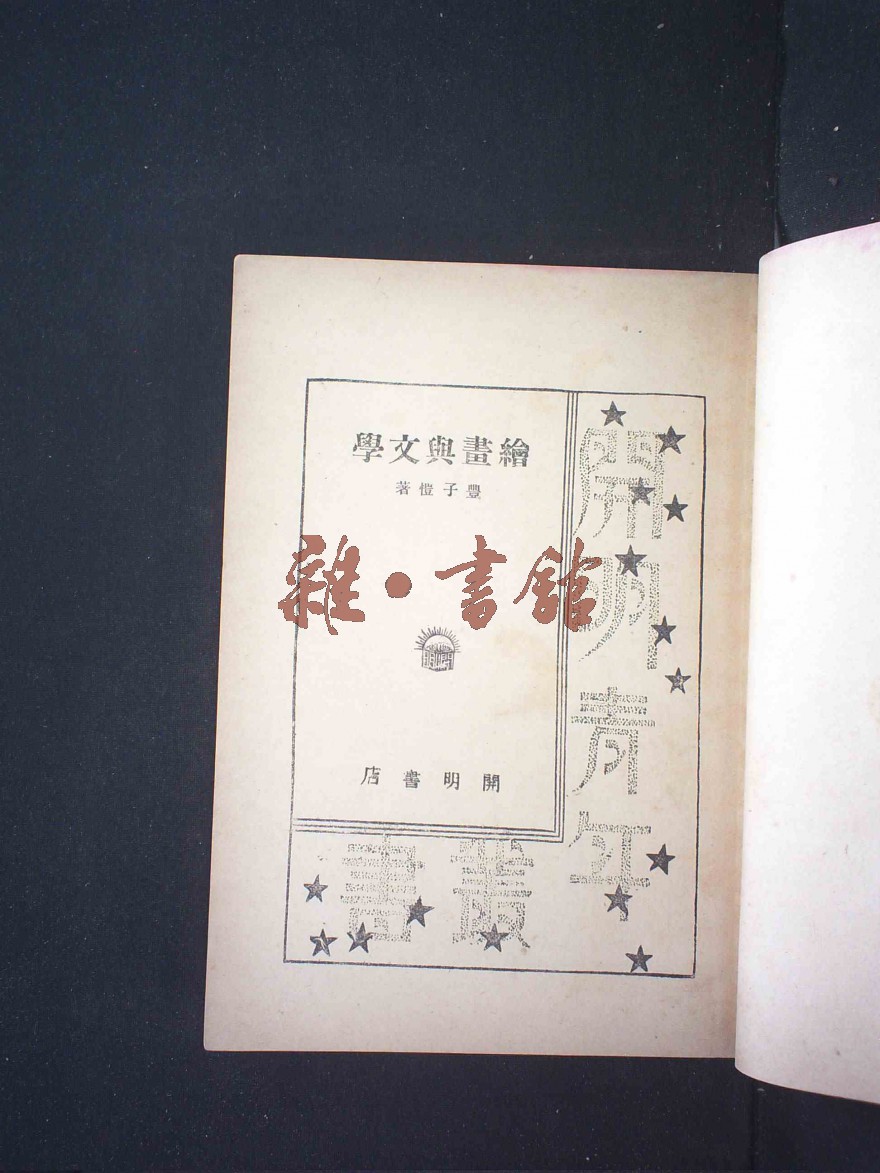 繪畫與文學
豐子愷著
雜·書館
開明書店
開明青年
叢書